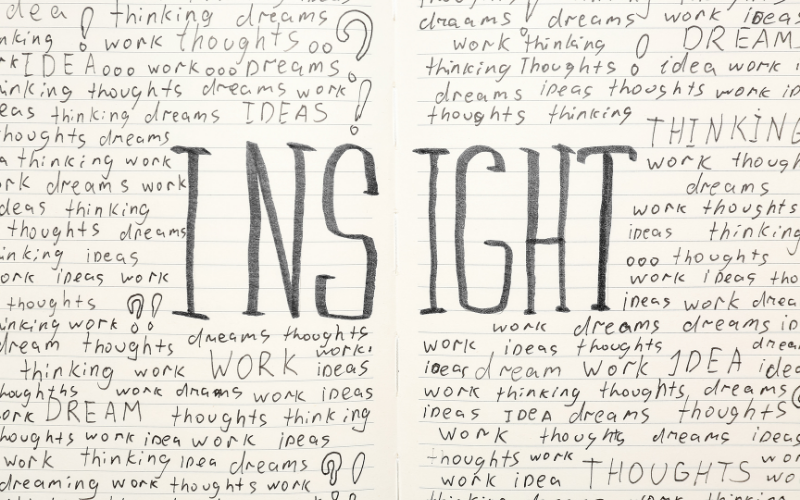 idea ! thinking dreams
thinking ! work thoughts ?
work IDEA ooo work ooo Dreams
thinking thoughts dreams work !
ideas thinking dreams IDEAS
thoughts dreams
a thinking work
work dreams work
ideas thinking
thoughts dreams
thinking ideas
work ideas work
thoughts ?!
thinking work
INS
dreams thoughts
dream thoughts work!
thinking WORK ideas
thoughths work drams work ideas
work DREAM thoughts thinking
thoughts work idea work ideas
work thinking idea dreams ??
dreaming work thoughts work
dreams ! dreams work ideas
work thinking ! DREAMS
thinking Thoughts idea work
dreams ideas thoughts work
thoughts thinking
THINKING
IGHT
work thoughts
dreams
work thoughts
ideas thinking
ooo thoughts
work ideas
ideas work dreams
work dreams dreams
work ideas thoughts dreams
ideas dream Work IDEA ideas
work thinking thoughts dreams
ideas IDEA dreams thoughts
Work thoughts dreams ideas
thoughts work work
work idea THOUGHTS